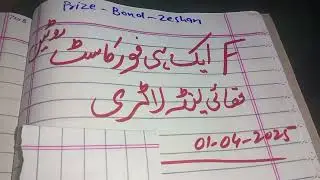 Prize - Bond - Zeshan
F ایک ہی فورکاسٹ روٹین
تھائی لینڈ لاٹری
01-04-2025